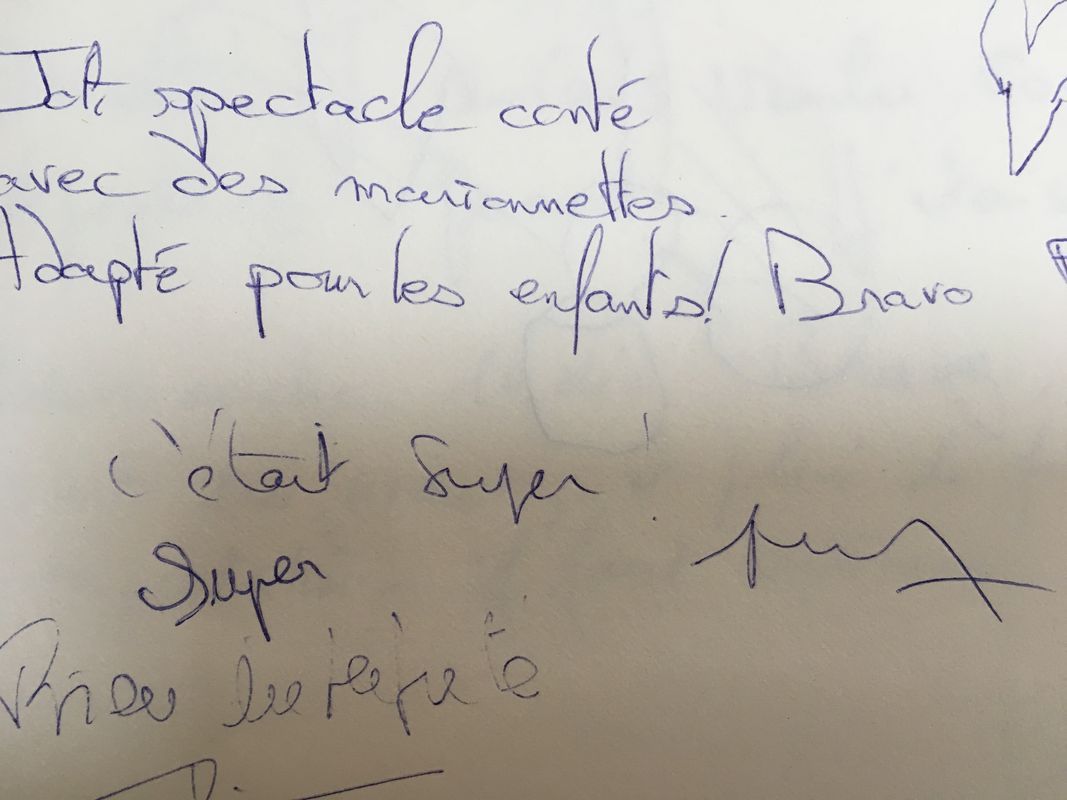 Joli spectacle conté
avec des marionnettes.
Adapté pour les enfants! Bravo
c'était super!
Super
Bien interprété